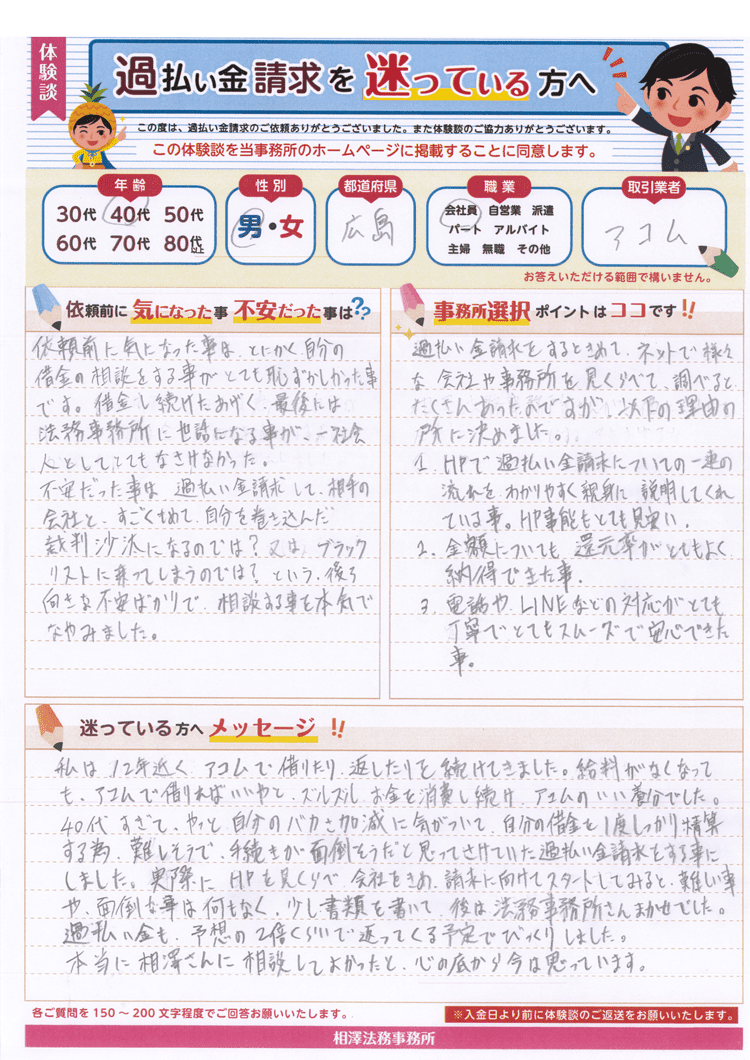 体験談
過払い金請求を迷っている方へ
この度は、過払い金請求のご依頼ありがとうございました。また体験談のご協力ありがとうございます。
この体験談を当事務所のホームページに掲載することに同意します。
年齢
30代 40代 50代
60代 70代 80代以上
性別
男・女
都道府県
広島
職業
会社員 自営業 派遣
パート アルバイト
主婦 無職 その他
取引業者
アコム
お答えいただける範囲で構いません。
依頼前に気になった事 不安だった事は??
依頼前に気になった事は、とにかく自分の
借金の相談をする事がとても恥ずかしかった事
です。借金し続けたあげく、最後には
法務事務所に世話になる事が、一社会
人としてとてもなさけなかった。
不安だった事は 過払い金請求して、相手の
会社と、すごくもめて、自分を巻き込んだ
裁判沙汰になるのでは?又は、ブラック
リストに乗ってしまうのでは?という、後ろ
向きな不安ばかりで、相談する事を本気で
なやみました。
事務所選択 ポイントはココです!!
過払い金請求をするときめて、ネットで様々
な会社や事務所を見くらべて、調べると
たくさんあったのですが、以下の理由の
所に決めました。
1. HPで過払い金請求についての一連の
流れを、わかりやすく親身に説明してくれ
ている事。HP事態もとても見安い。
2. 金額についても、還元率がとてもよく
納得できた事。
3. 電話や、LINEなどの対応がとても
丁寧でとてもスムーズで安心できた
事。
迷っている方へ メッセージ!!
私は12年近く、アコムで借りたり、返したりを続けてきました。給料がなくなって
も、アコムで借ればいいやと、ズルズルお金を消費し続け、アコムのいい養分でした。
40代すぎて、やっと自分のバカさ加減に気がついて、自分の借金を1度しっかり精算
する為、難しそうで、手続きが面倒そうだと思ってさけていた過払い金請求をする事に
しました。実際にHPを見くらべ会社をきめ、請求に向けてスタートしてみると、難しい事
や、面倒な事は何もなく、少し書類を書いて、後は法務事務所さんまかせでした。
過払い金も、予想の2倍くらいで返ってくる予定でびっくりしました。
本当に相澤さんに相談してよかったと、心の底から今は思っています。
各ご質問を150～200文字程度でご回答お願いいたします。
※入金日より前に体験談のご返送をお願いいたします。
相澤法務事務所